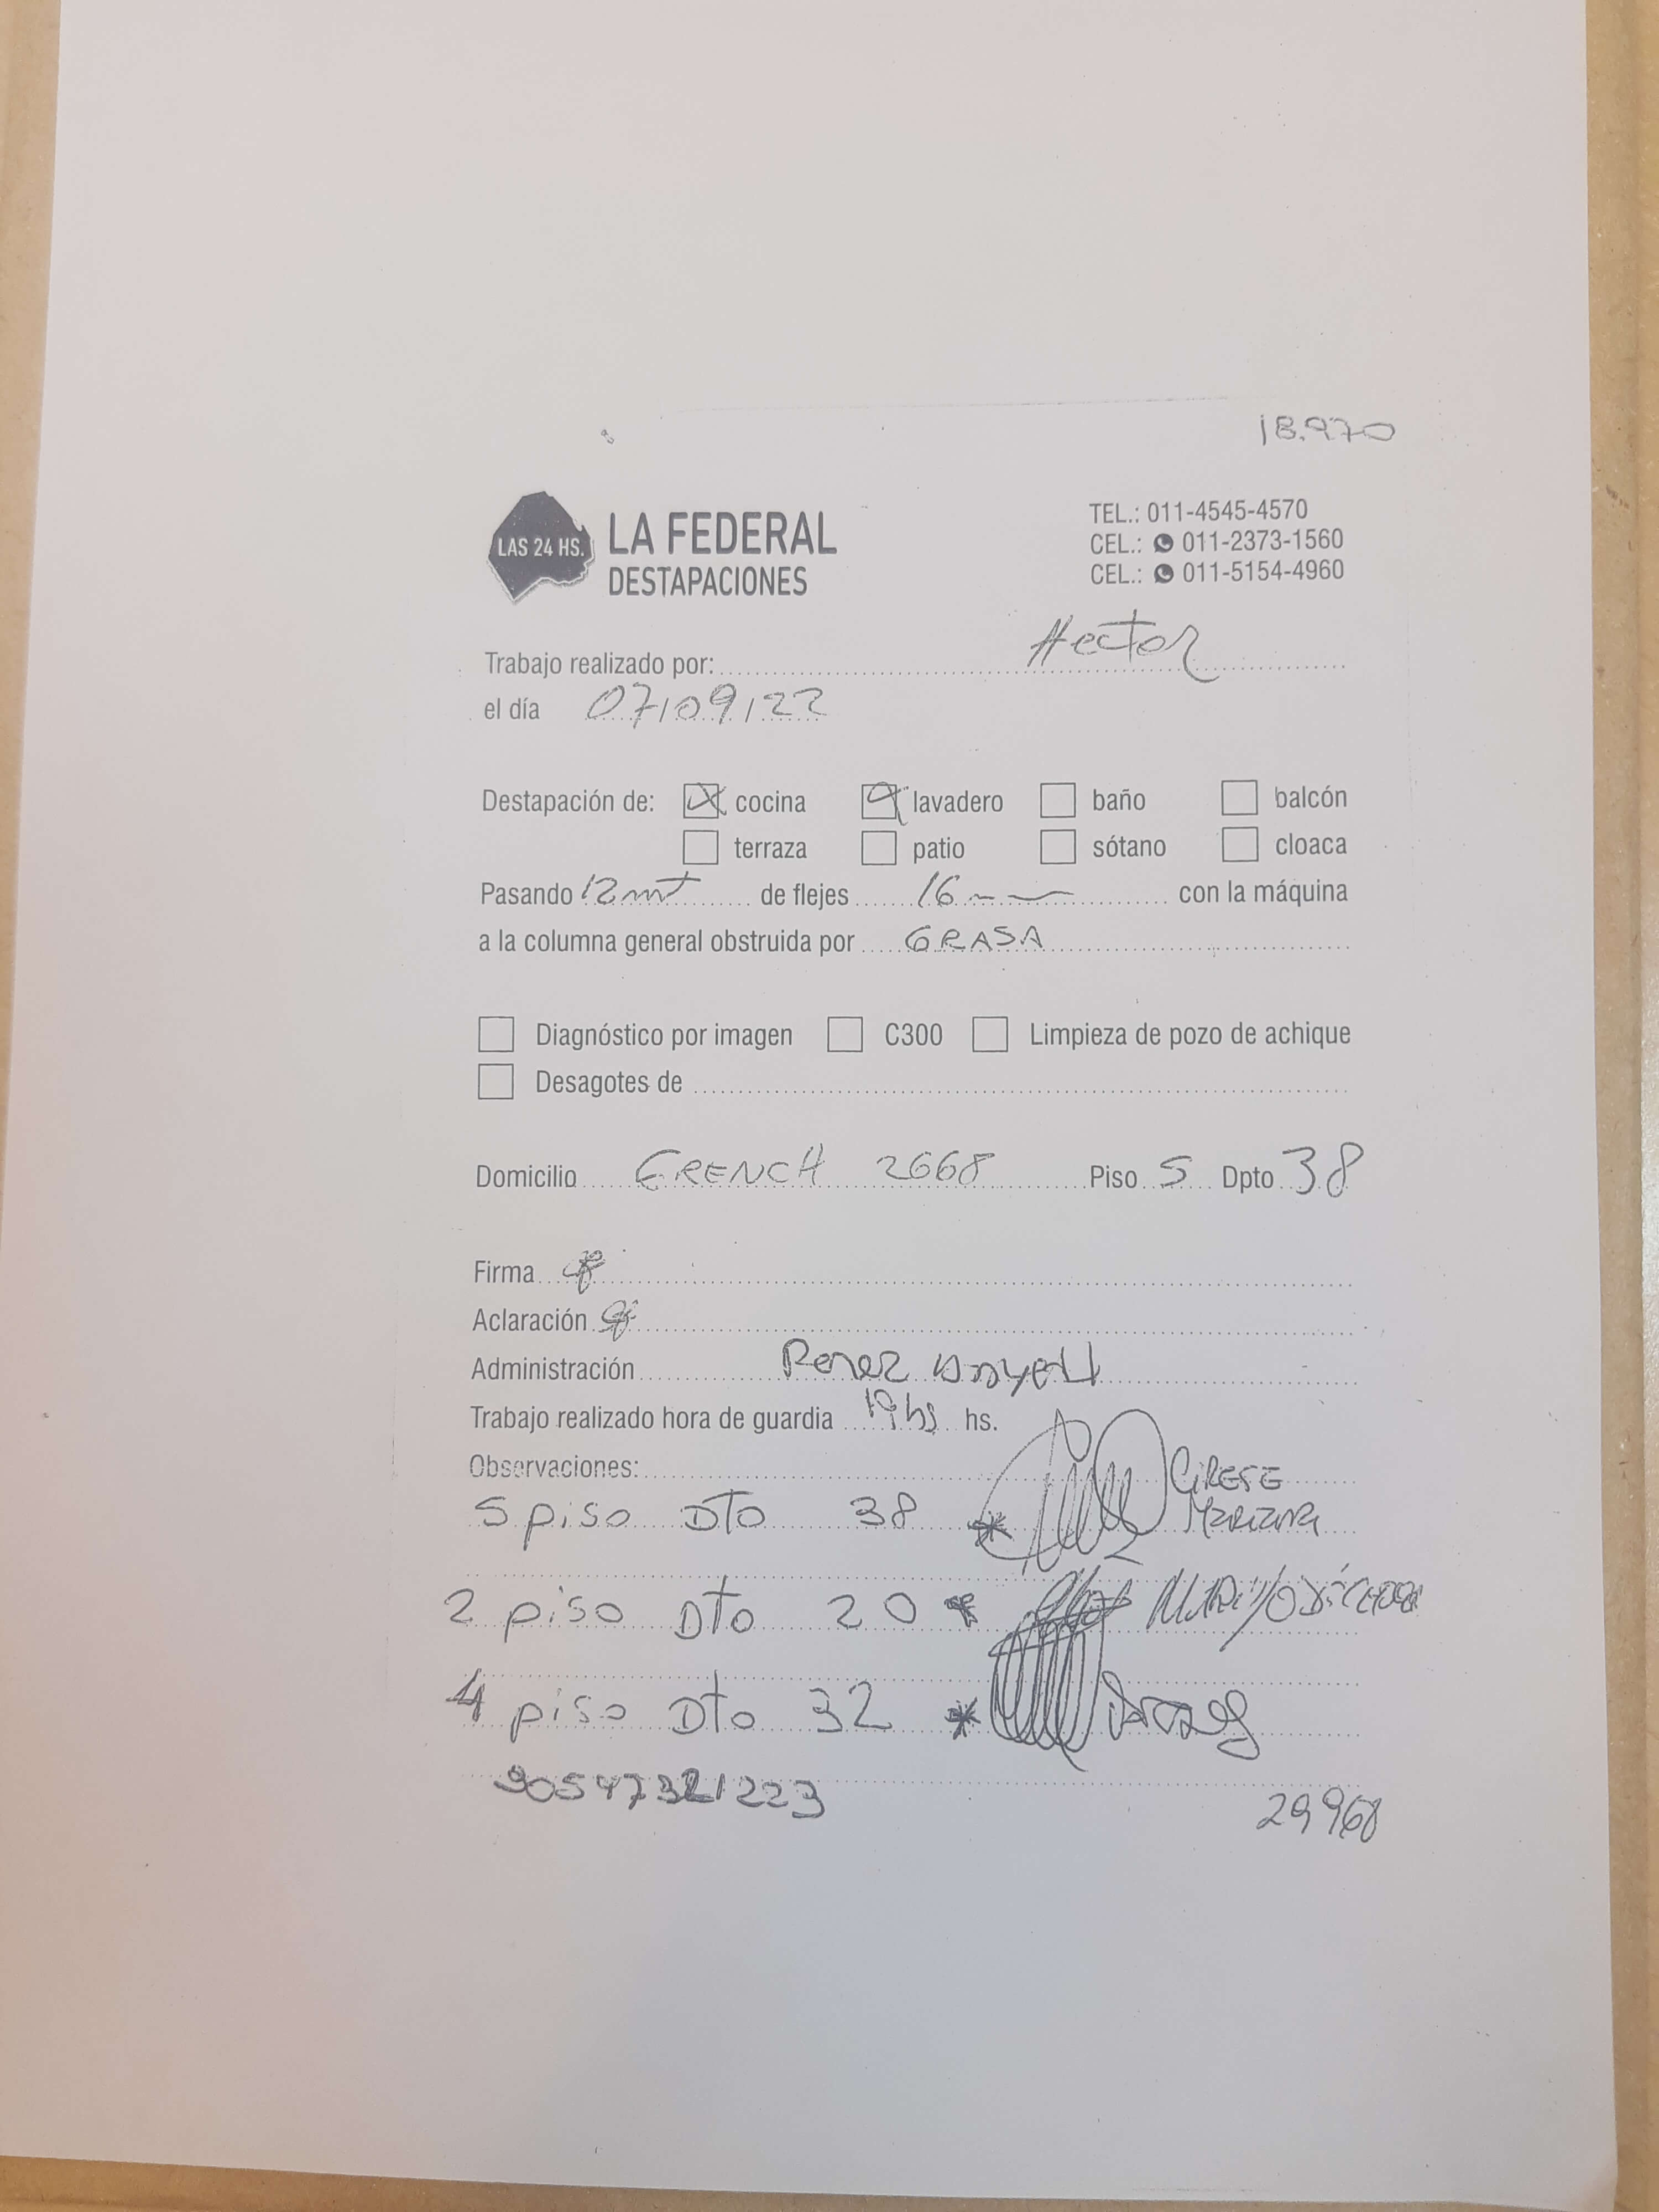 18.970
LAS 24 HS.
LA FEDERAL
DESTAPACIONES
TEL.: 011-4545-4570
CEL.: 011-2373-1560
CEL.: 011-5154-4960
Trabajo realizado por: Hector
el día 07/09/22
Destapación de: cocina lavadero baño balcón
terraza patio sótano cloaca
Pasando 12 mt de flejes 16 con la máquina
a la columna general obstruida por GRASA
Diagnóstico por imagen C300 Limpieza de pozo de achique
Desagotes de
Domicilio FRENCH 2668 Piso 5 Dpto 38
Firma
Aclaración
Administración Perez
Trabajo realizado hora de guardia 19 hs hs.
Observaciones: CIRESE
5 piso DTO 38 * Mariana
2 piso DTO 20 *
4 piso Dto 32 *
29968